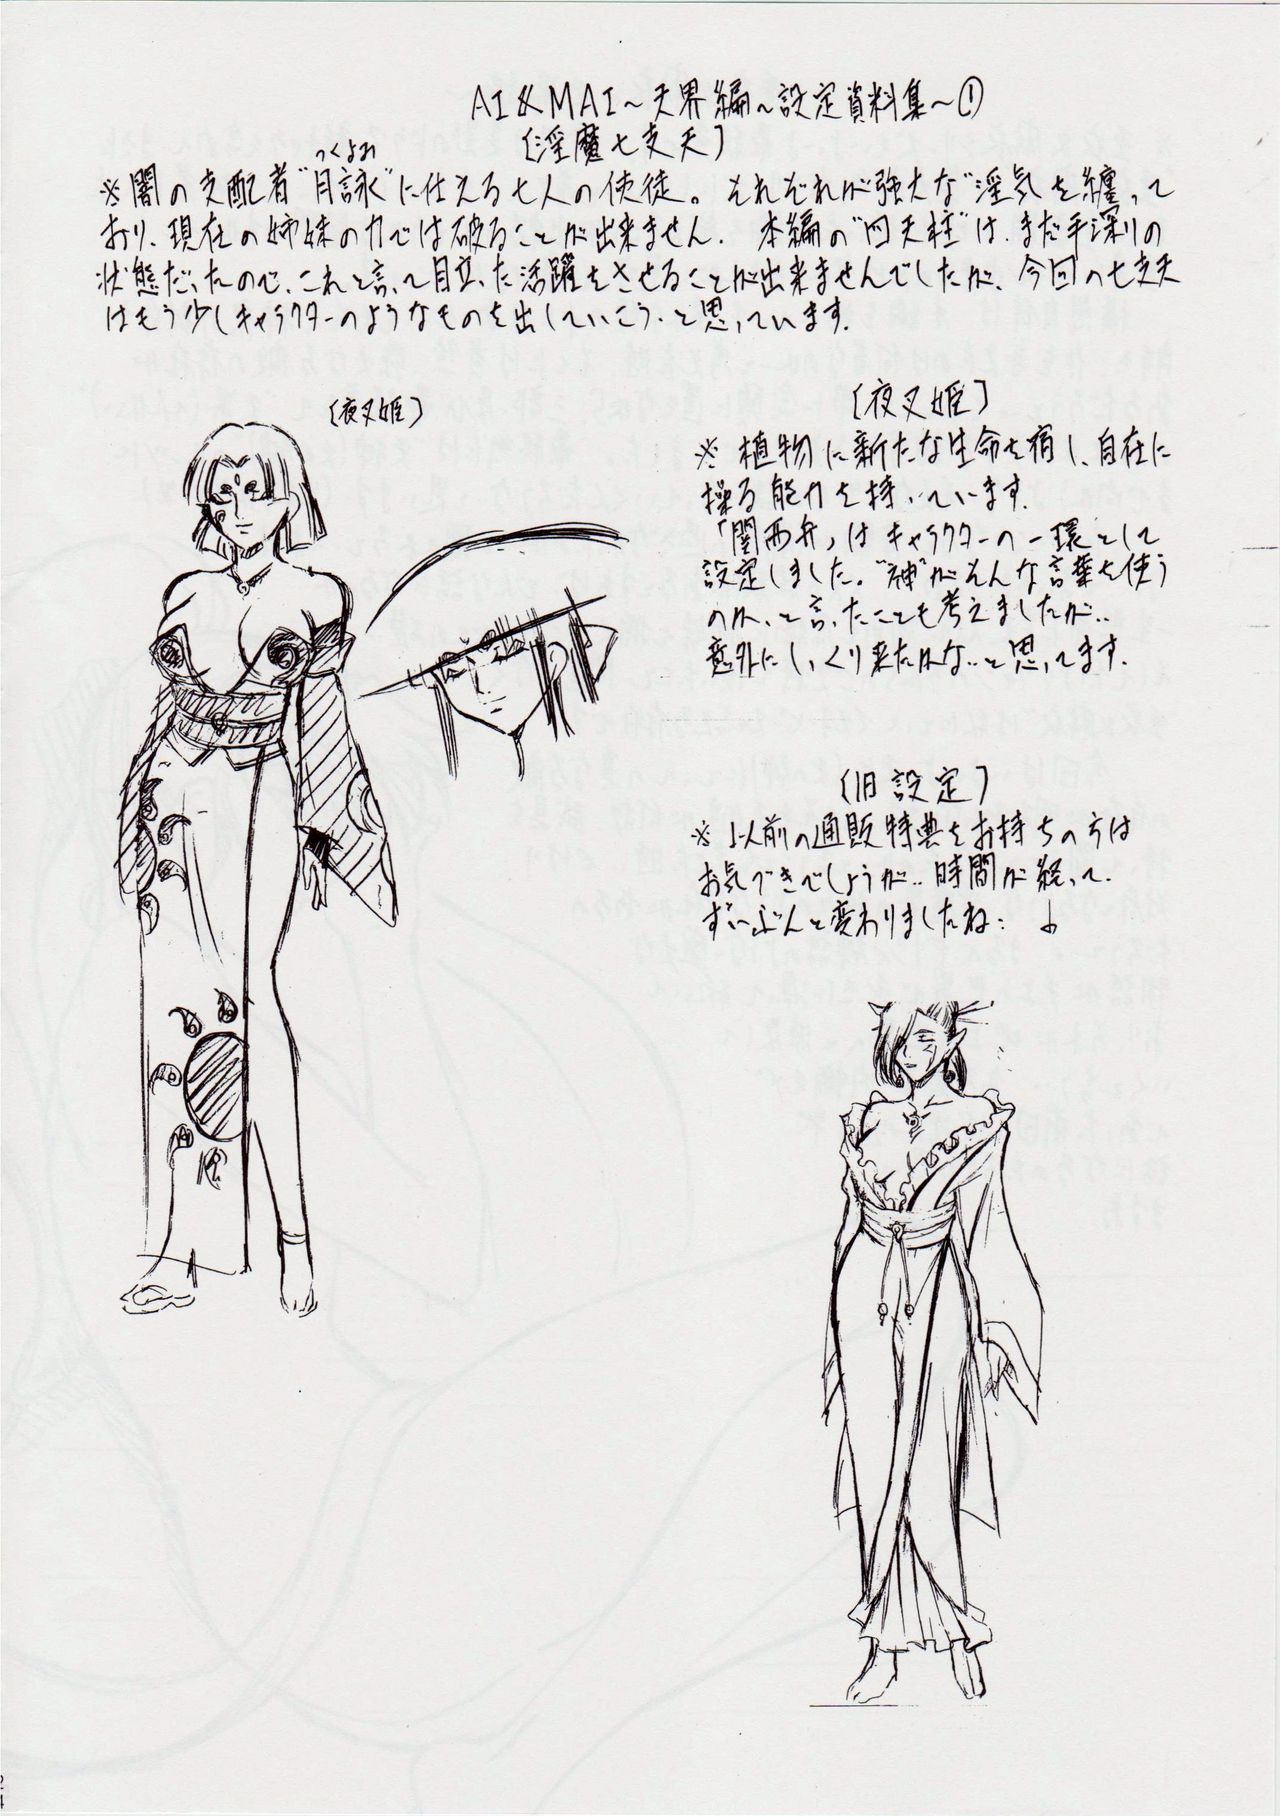 AI&MAI～天界編～設定資料集～①
〔淫魔七支天〕
つくよみ
※闇の支配者"月詠"に仕える七人の使徒。それぞれが強大な"淫気を纏って
おり、現在の姉妹の力では破ることが出来ません。本編の"四天柱"は、まだ手深りの
状態だったので、これと言って目立った活躍をさせることが出来ませんでしたが、今回の七支天
はもう少しキャラクターのようなものを出していこう、と思っています。
〔夜叉姫〕
〔夜叉姫〕
※植物に新たな生命を宿し、自在に
操る能力を持っています。
「関西弁」はキャラクターの一環として
設定しました。"神"がそんな言葉を使う
のか、と言ったことも考えましたが‥
意外にしっくり来たかな‥と思ってます。
〔旧設定〕
※以前の通販特典をお持ちの方は
お気づきでしょうが‥時間が経って、
ずいぶんと変わりましたね‥ ↓
24